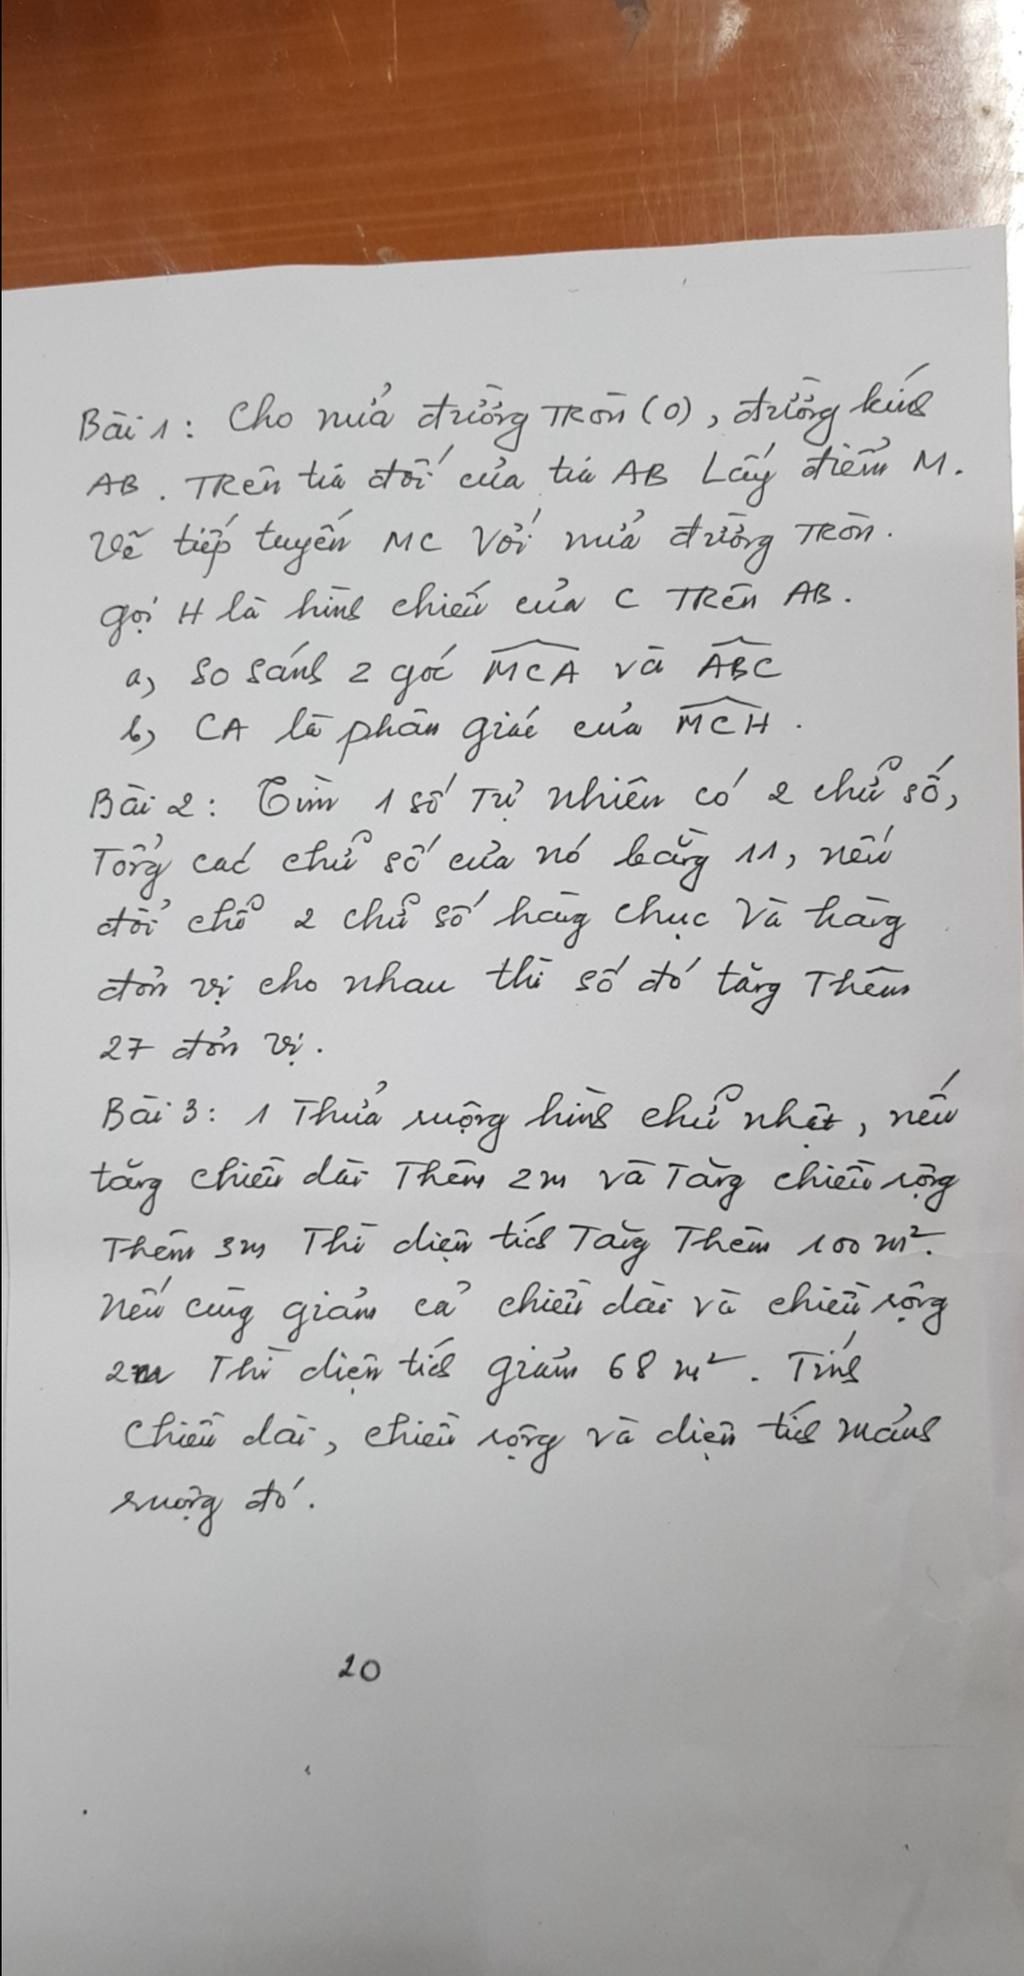 Bài 1: Cho nửa đường TRòn (O), đường kính
AB. TRên tia đối của tia AB Lấy điểm M.
Vẽ tiếp tuyến MC Với nửa đường TRòn.
gọi H là hình chiếu của C TRên AB.
a, So sánh 2 góc MCA và ABC
b, CA là phân giác của MCH.
Bài 2: Tìm 1 số Tự nhiên có 2 chữ số,
Tổng các chữ số của nó bằng 11, nếu
đổi chỗ 2 chữ số hàng chục Và hàng
đơn vị cho nhau thì số đó tăng Thêm
27 đơn vị.
Bài 3: 1 Thửa ruộng hình chữ nhật, nếu
tăng chiều dài Thêm 2m và Tăng chiều rộng
Thêm 3m Thì diện tích Tăng Thêm 100 m².
Nếu cùng giảm cả chiều dài và chiều rộng
2m Thì diện tích giảm 68 m². Tính
Chiều dài, chiều rộng và diện tích mảnh
ruộng đó.
20